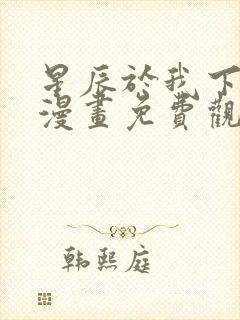 星辰於我下
漫畫免費觀
韩熙庭